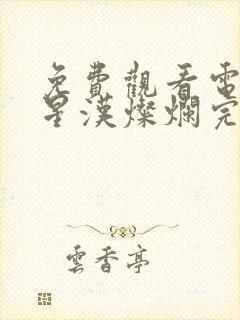 免費觀看電
星漢燦爛完
雲香亭